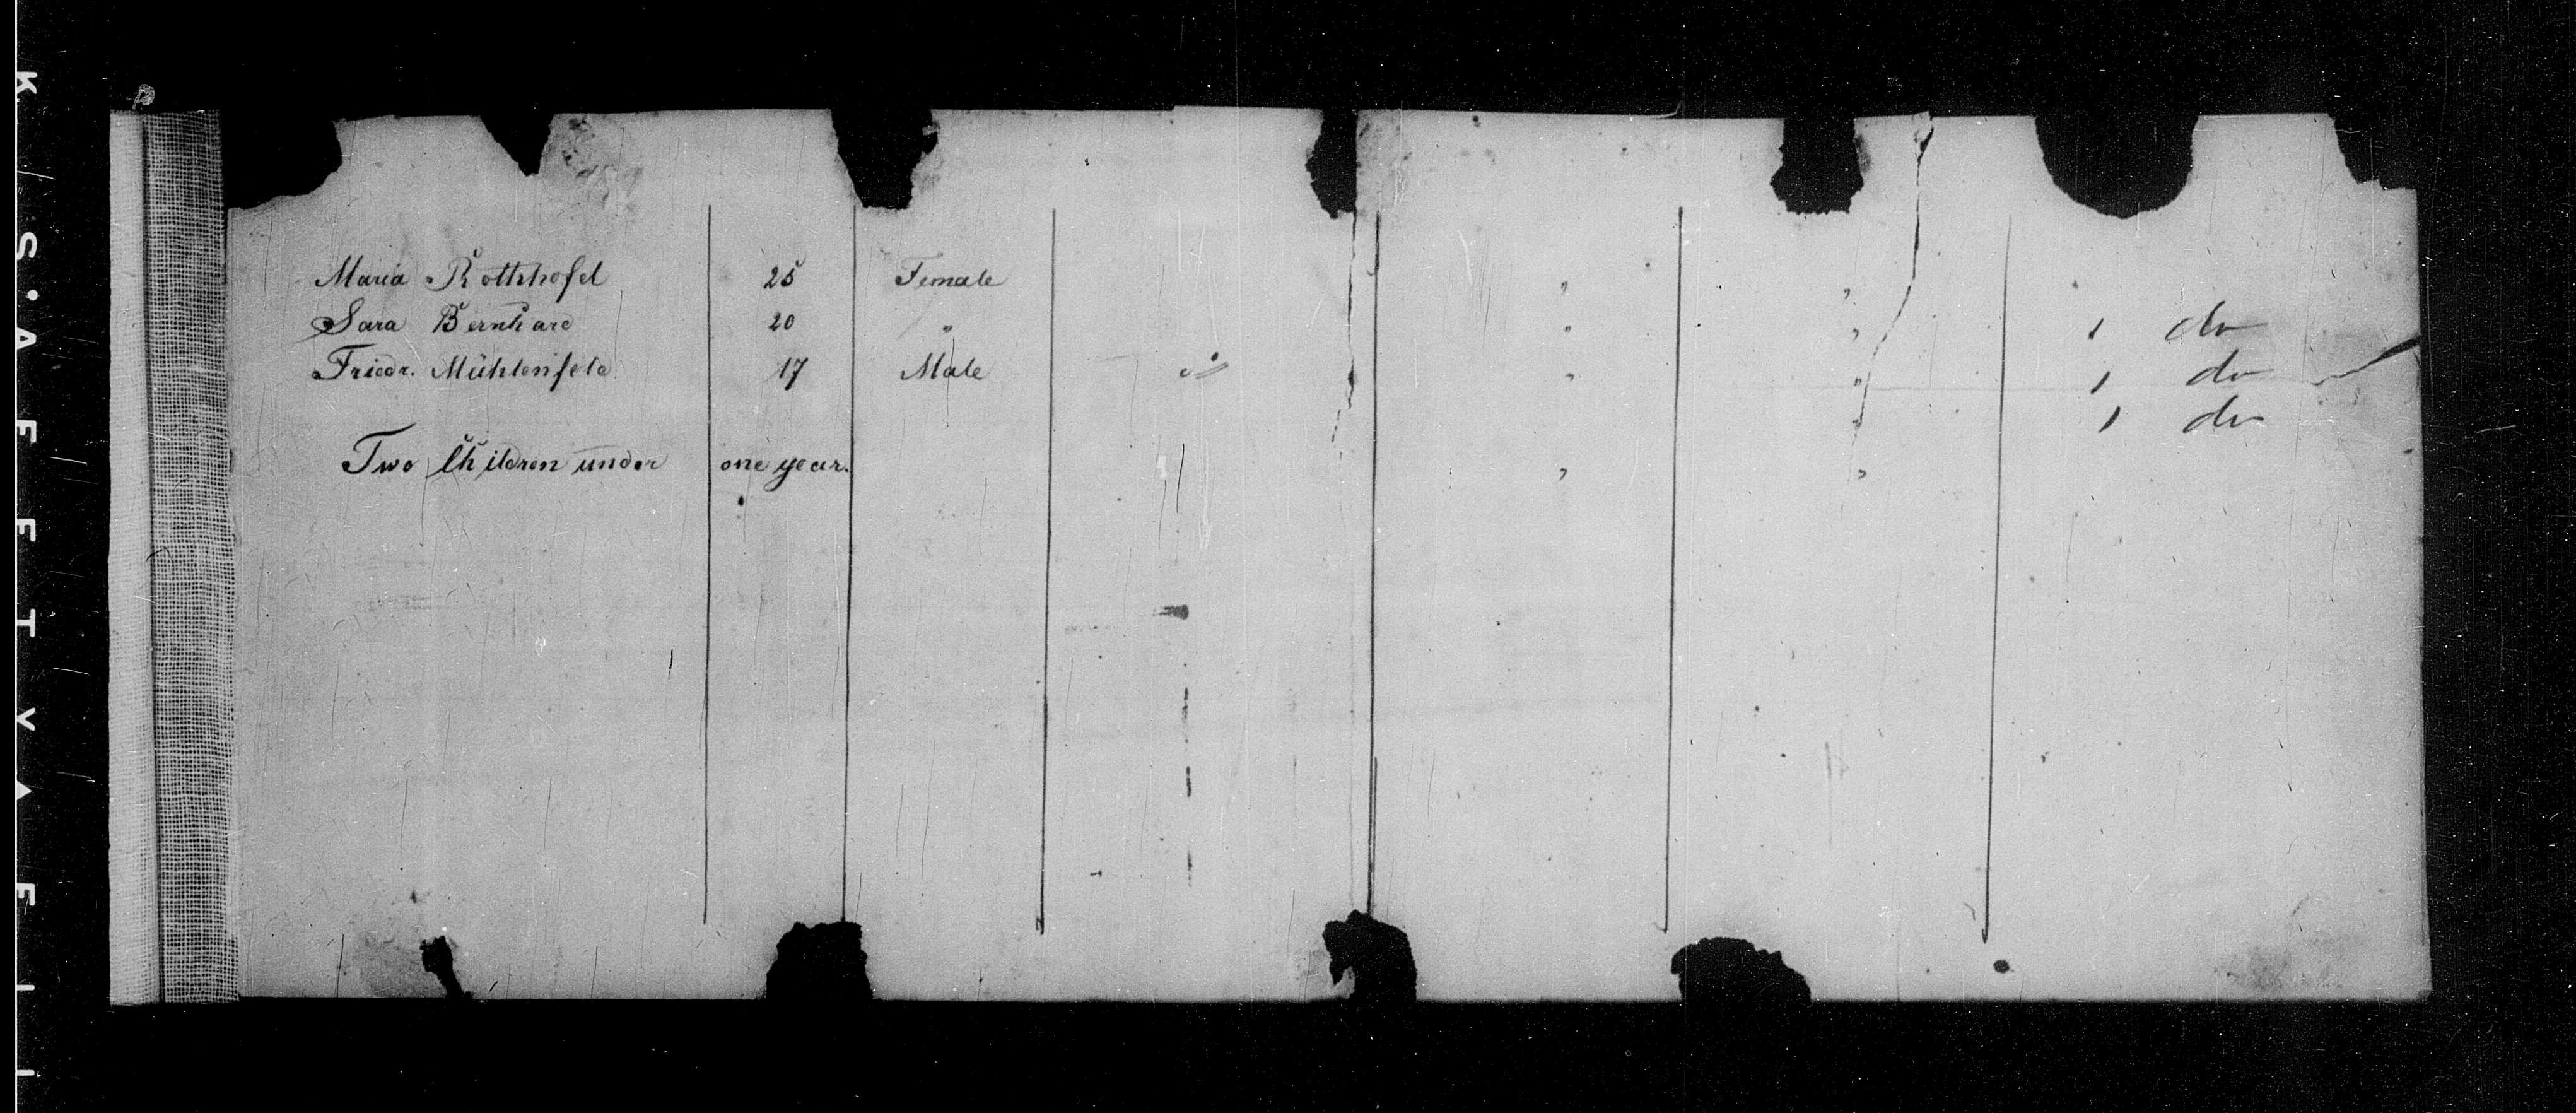 Maria Rothhofel 25 Female " "
Sara Bernhard 20 " " " 1 do
Friedr. Mühlenfeld 17 Male " " 1 do
" 1 do
Two Children under one year. " "